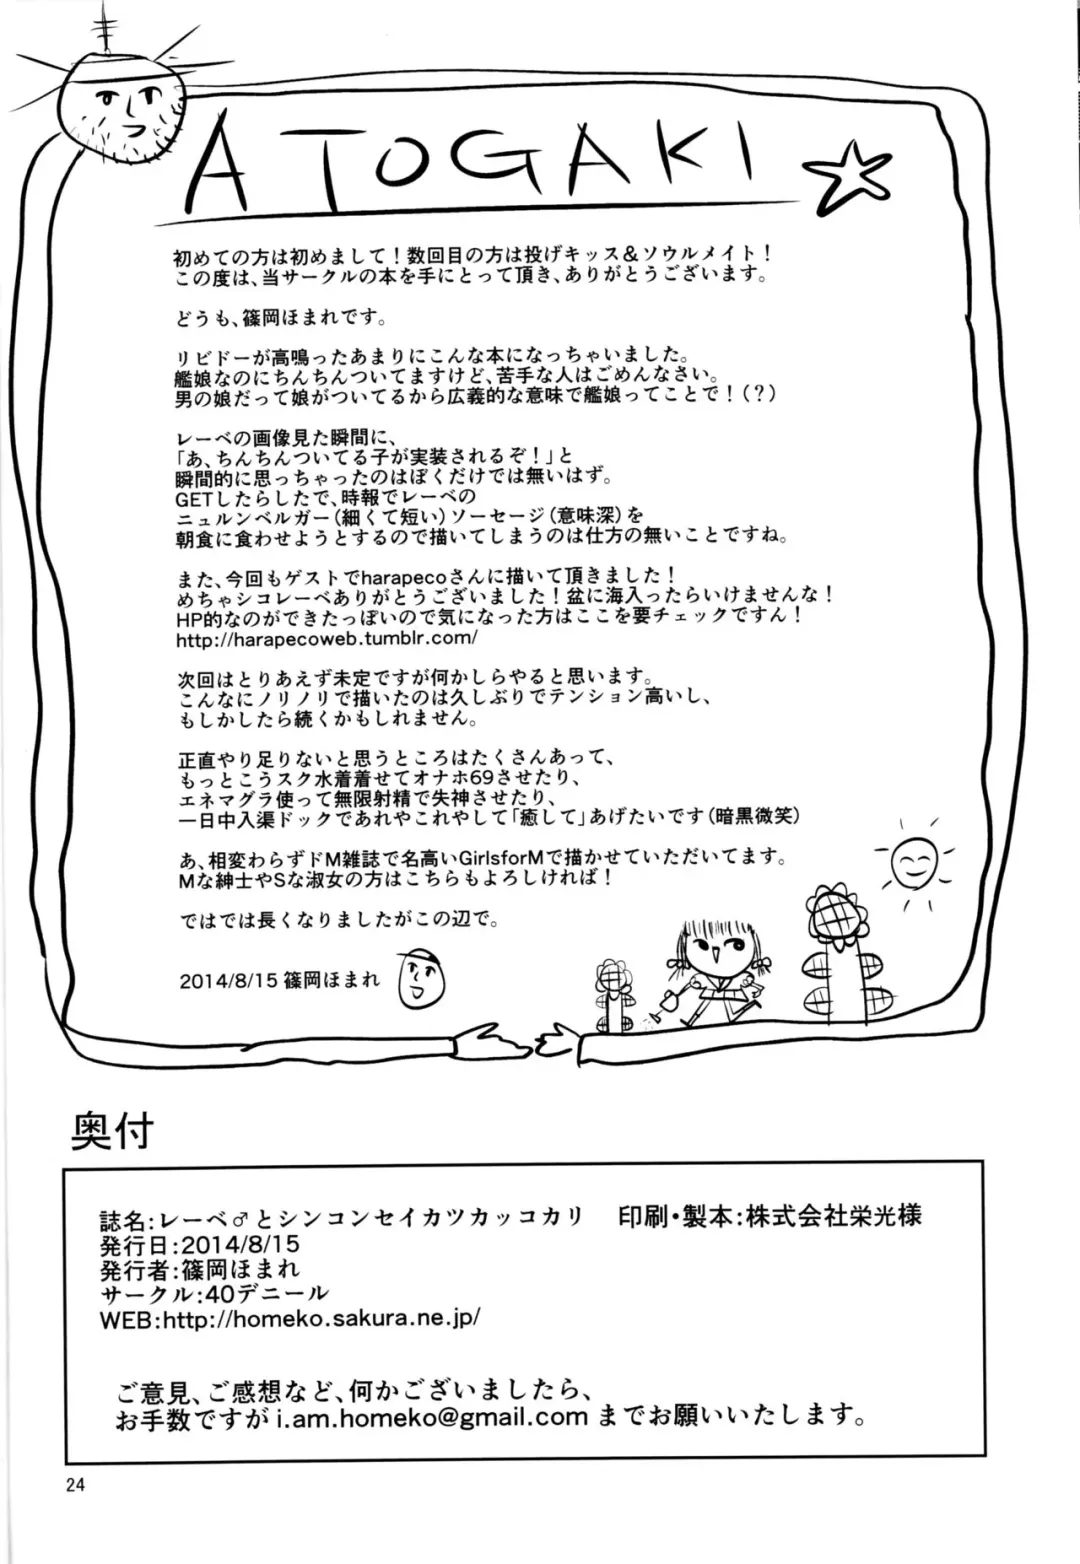 ATOGAKI
初めての方は初めまして！数回目の方は投げキッス＆ソウルメイト！
この度は、当サークルの本を手にとって頂き、ありがとうございます。
どうも、篠岡ほまれです。
リビドーが高鳴ったあまりにこんな本になっちゃいました。
艦娘なのにちんちんついてますけど、苦手な人はごめんなさい。
男の娘だって娘がついてるから広義的な意味で艦娘ってことで！(？)
レーベの画像見た瞬間に、
「あ、ちんちんついてる子が実装されるぞ！」と
瞬間的に思っちゃったのはぼくだけでは無いはず。
GETしたらしたで、時報でレーベの
ニュルンベルガー(細くて短い)ソーセージ(意味深)を
朝食に食わせようとするので描いてしまうのは仕方の無いことですね。
また、今回もゲストでharapecoさんに描いて頂きました！
めちゃシコレーベありがとうございました！盆に海入ったらいけませんな！
HP的なのができたっぽいので気になった方はここを要チェックですん！
http://harapecoweb.tumblr.com/
次回はとりあえず未定ですが何かしらやると思います。
こんなにノリノリで描いたのは久しぶりでテンション高いし、
もしかしたら続くかもしれません。
正直やり足りないと思うところはたくさんあって、
もっとこうスク水着着せてオナホ69させたり、
エネマグラ使って無限射精で失神させたり、
一日中入渠ドックであれやこれやして「癒して」あげたいです(暗黒微笑)
あ、相変わらずドM雑誌で名高いGirlsforMで描かせていただいてます。
Mな紳士やSな淑女の方はこちらもよろしければ！
ではでは長くなりましたがこの辺で。
2014/8/15 篠岡ほまれ
奥付
誌名：レーベ♂とシンコンセイカツカッコカリ 印刷・製本：株式会社栄光様
発行日：2014/8/15
発行者：篠岡ほまれ
サークル：40デニール
WEB：http://homeko.sakura.ne.jp/
ご意見、ご感想など、何かございましたら、
お手数ですが i.am.homeko@gmail.com までお願いいたします。
24